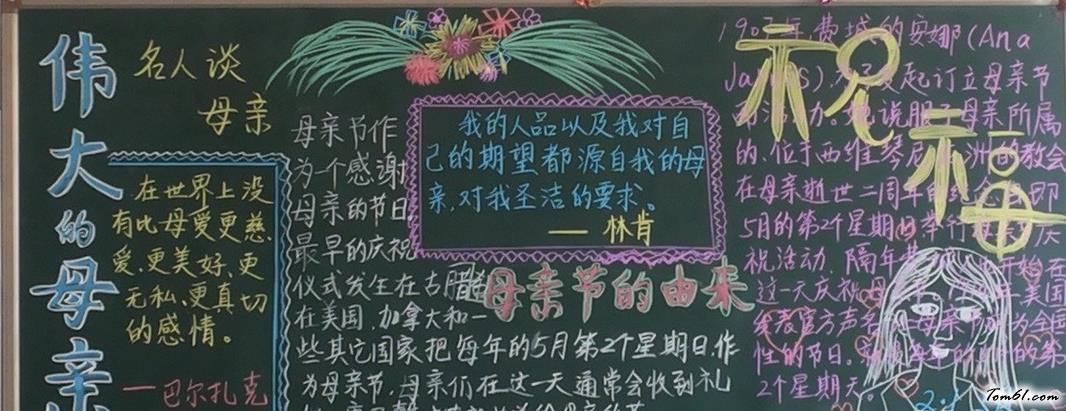 伟大的母亲
名人谈
母亲
在世界上没
有比母爱更慈
爱、更美好、更
无私、更真切
的感情。
——巴尔扎克
母亲节作
为一个感谢
母亲的节日,
最早的庆祝
仪式发生在古腊
在美国,加拿大和一
些其它国家把每年的5月第2个星期日,作
为母亲节,母亲们在这一天通常会收到礼
我的人品以及我对自
己的期望都源自我的母
亲,对我圣洁的要求。
——林肯
母亲节的由来
祝福
费城的安娜(Ana
发起订立母亲节
说服 母亲所属
的,位于西维 的教会
在母亲逝世二周年的 即
5月的第2个星期日举行 庆
祝活动,隔年 在
这一天庆祝 美国
发表官方声 母亲节 为全国
性的节日。 的第
2个星期天
Tom61.com